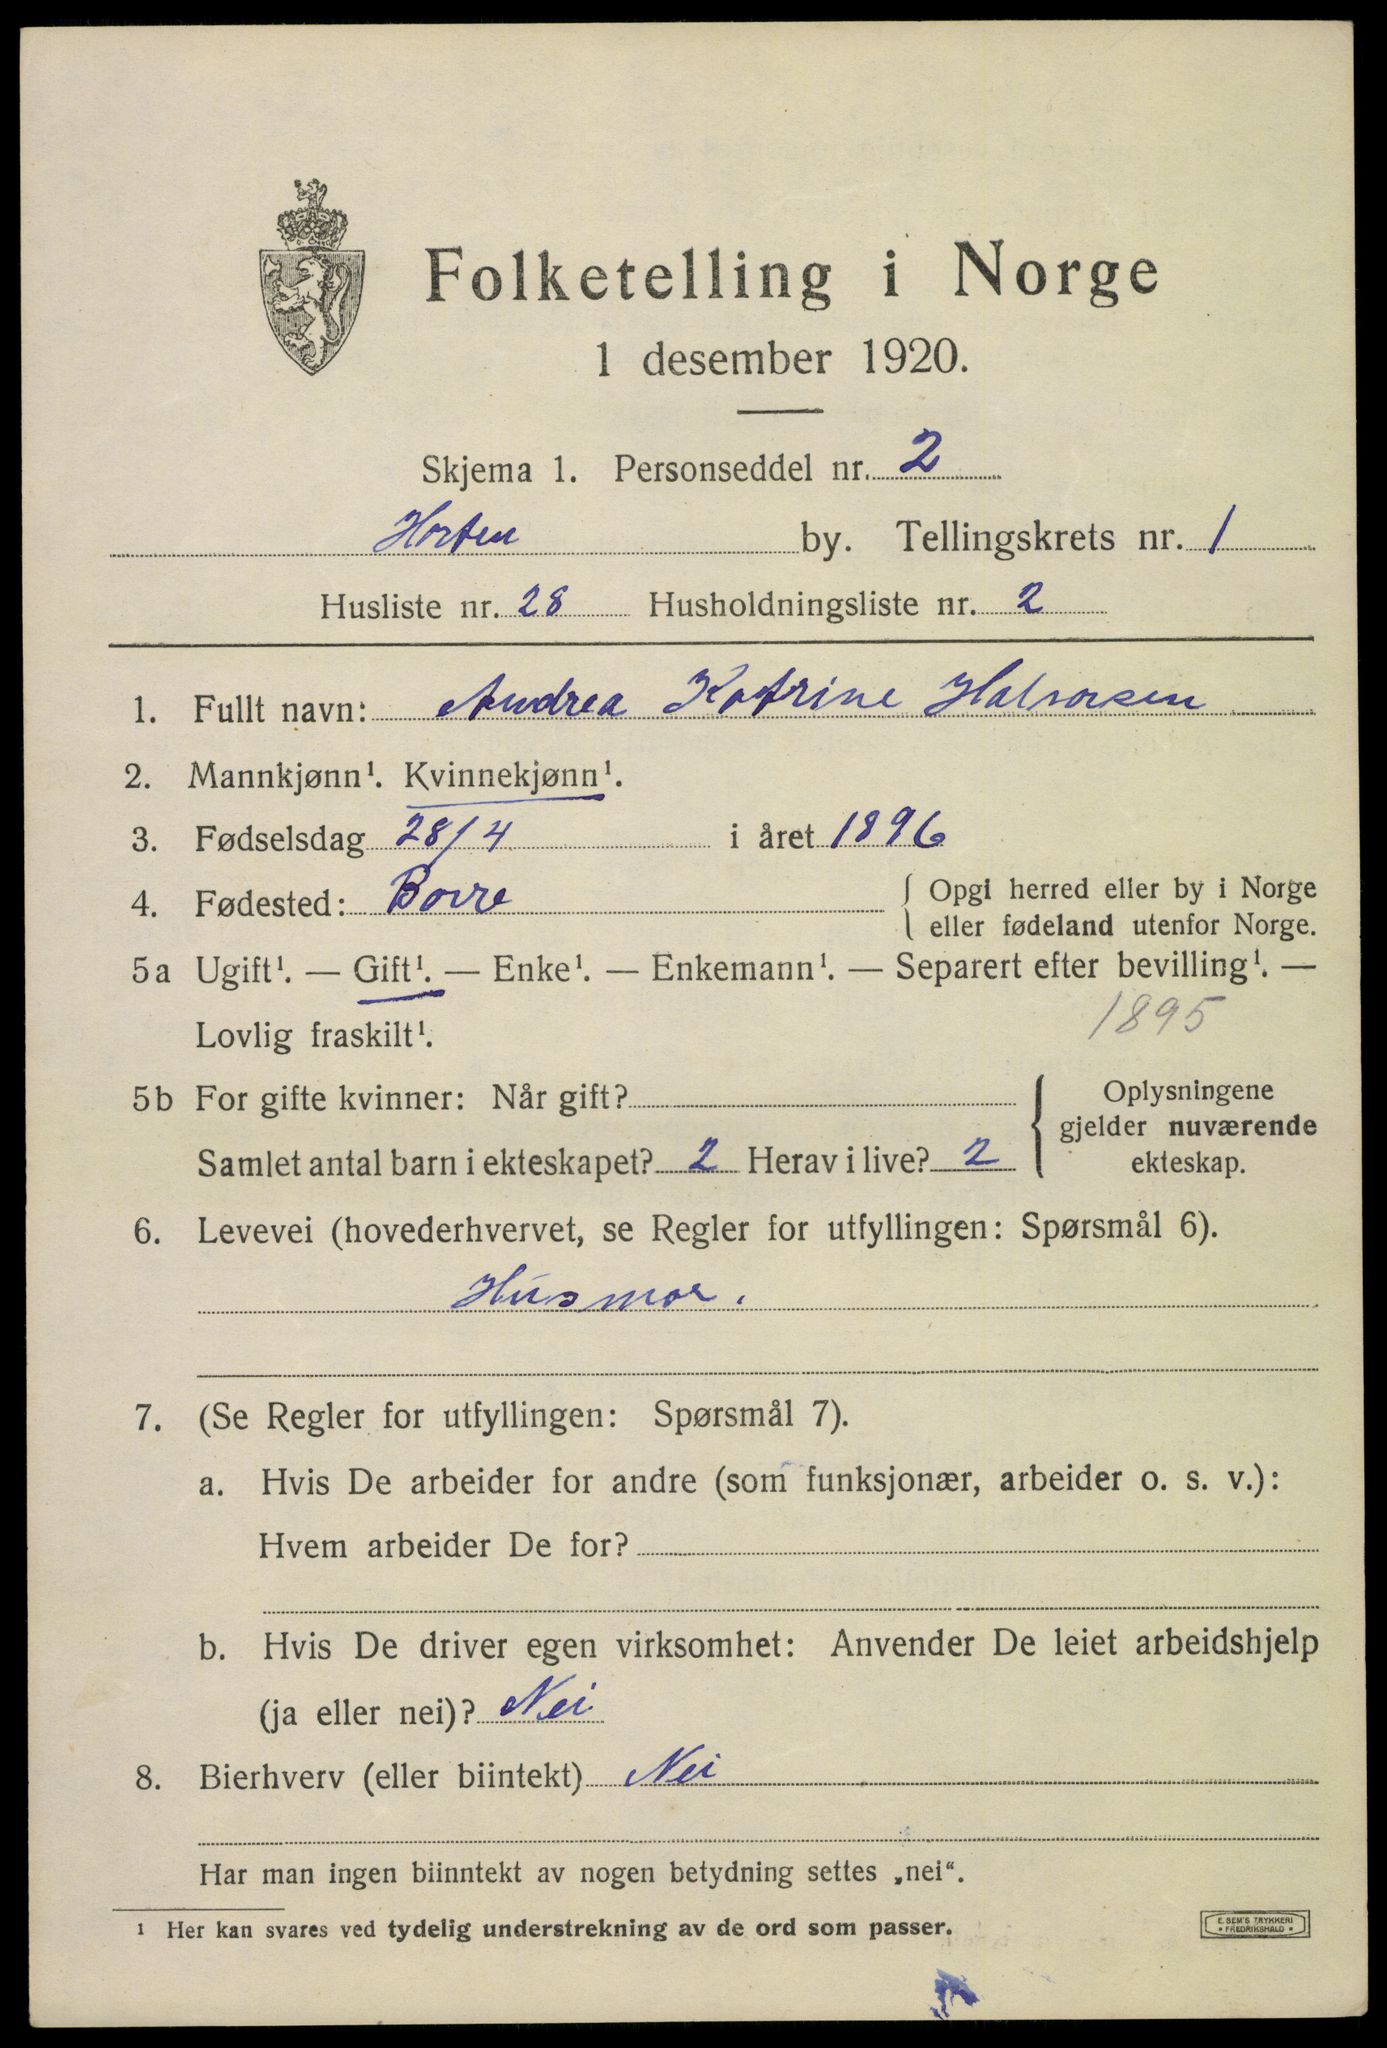 Folketelling i Norge
1 desember 1920.
Skjema 1. Personseddel nr. 2
Horten by. Tellingskrets nr. 1
Husliste nr. 28 Husholdningsliste nr. 2
1. Fullt navn: Andrea Katrine Halvorsen
2. Mannkjønn¹. Kvinnekjønn¹.
3. Fødselsdag 28/4 i året 1896
4. Fødested: Borre { Opgi herred eller by i Norge
eller fødeland utenfor Norge.
5a Ugift¹. — Gift¹. — Enke¹. — Enkemann¹. — Separert efter bevilling¹. —
Lovlig fraskilt¹. 1895
5b For gifte kvinner: Når gift? { Oplysningene
gjelder nuværende
ekteskap.
Samlet antal barn i ekteskapet? 2 Herav i live? 2
6. Levevei (hovederhvervet, se Regler for utfyllingen: Spørsmål 6).
Husmor.
7. (Se Regler for utfyllingen: Spørsmål 7).
a. Hvis De arbeider for andre (som funksjonær, arbeider o. s. v.):
Hvem arbeider De for?
b. Hvis De driver egen virksomhet: Anvender De leiet arbeidshjelp
(ja eller nei)? Nei
8. Bierhverv (eller biintekt) Nei
Har man ingen biinntekt av nogen betydning settes „nei“.
¹ Her kan svares ved tydelig understrekning av de ord som passer.
E. SEM'S TRYKKERI
• FREDRIKSHALD •